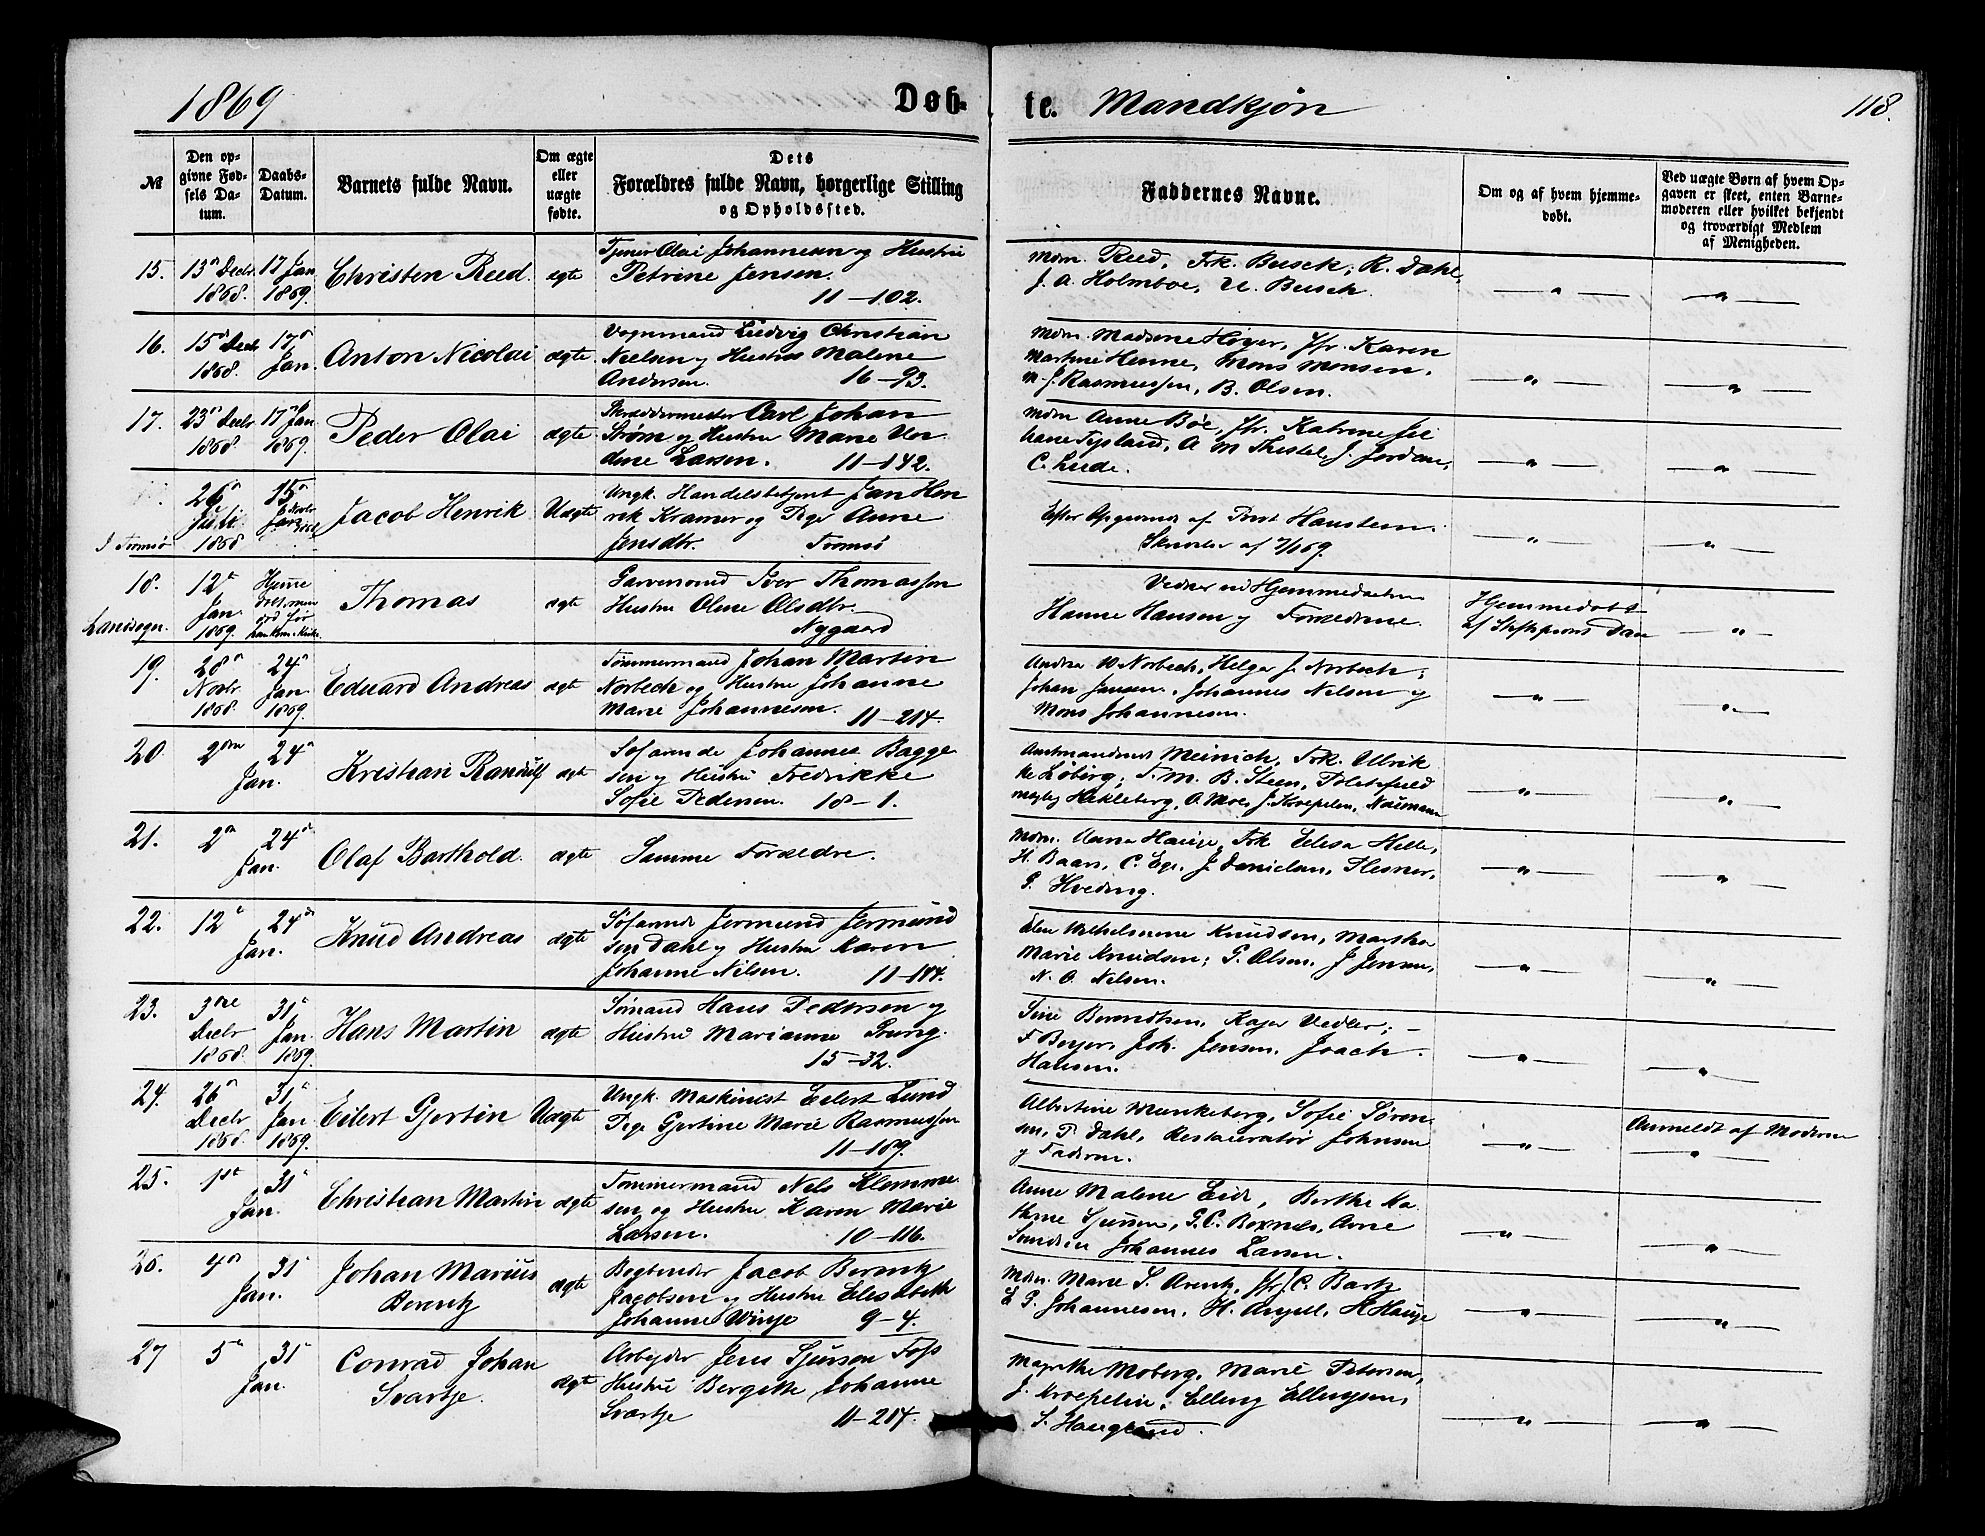 1869
Døb-
te. Mandkjøn
118.
№
Den op-
givne Fød-
sels Da-
tum.
Daabs-
Datum.
Barnets fulde Navn.
Om ægte
eller
uægte
fødte.
Dets
Forældres fulde Navn, borgerlige Stilling
og Opholdssted.
Faddernes Navne.
Om og af hvem hjemme-
døbt.
Ved uægte Børn af hvem Op-
gaven er skeet, enten Barne-
moderen eller hvilket bekjendt
og troværdigt Medlem
af Menigheden.
15.
13 Decbr
1868.
17 Jan
1869.
Christen Reed.
ægte
Tjener Olai Johannesen og Hustru
Petrine Jensen.
11-102.
Mdm. Reed, Frk. Busch, R. Dahl,
J. A. Holmboe, U. Busch.
16.
15 Decbr
1868.
17
Jan.
Anton Nicolai
ægte
Vognmand Ludvig Christian
Nielsen og Hustru Malene
Andersen. 16-93.
Mdm. Madsene Høyer, Jfr. Karen
Martine Henne, Mons Monsen,
M. J. Rasmussen, B. Olsen.
17.
23 Decbr
1868.
17 Jan.
1869.
Peder Olai
ægte
Skræddermester Carl Johan
Strøm og Hustru Marie
Larsen. 11-142.
Mdm Anne Bøe, Jfr. Katrine
A M Thistel, J. Jordan,
C. Lude.
I Tromsø
26
Juli
1868
15
Jacob Henrik
Uægte
Ungk. Handelsbetjent Jan Hen
rik Kramer og Pige Anne
Jensdtr. Tromsø
Efter Opgivende af Prst
Skrivelse af 7/1 69.
18.
Landsogn.
12
Jan.
1869.
Hjeme
Thomas
ægte
Garversvend Iver Thomassen
Hustru Oline Olsdtr.
Nygaard
Vedner ved Hjemmedaaben
Hanne Hansen og Forældrene.
Hjemmedøbt
af Stiftsprovst Dan
19.
28
Novbr
1868.
24
Jan.
1869.
Eduard Andreas
ægte
Tømmermand Johan Martin
Norbech og Hustru Johanne
Marie Johannesen. 11-214.
Andrea W Norbech, Helger J. Norbech;
Johan Jansen, Johannes Nilsen og
Mons Johannesen.
20.
2den
Jan.
24
Kristian Randulf
ægte
Søfarende Johannes Bagge
sen og Hustru Fredrikke
Sofie Pedersen. 18-1.
Amtmandinde Meinich, Frk. Ulrik
ke Løberg; T. M. B. Steen, Politifuld
mægtig Hekleberg, O. Moe, J. Kroepelin, Naumann
21.
2
Jan.
24
Olaf Barthold.
ægte
Samme Forældre.
Mdm. Anna Hauge, Frk Elisa Helle,
H. Baars, C. Ege, J. Danielsen, Flesner,
P. Hveding.
22.
12
24
Jan.
Knud Andreas
ægte
Søfarende Jermund Jermund
sen Dahl og Hustru Karen
Johanne Nilsen. 11-184.
Wilhelmine Knudsen, Martha
Marie Knudsen; G. Olsen, J Jensen,
N. O. Nilsen.
23.
3die
Decbr
1868.
31
Jan.
1869.
Hans Martin
ægte
Sømand Hans Pedersen og
Hustru Marianne Prung.
15-32.
Sine Berendtsen, Kaja Vedler;
F Beyer, Joh. Jensen, Joach.
Hansen.
24.
26
Decbr
1868.
31
Jan
1869.
Eilert Gjertin
Uægte
Ungk. Maskinist Eilert Lund
Pige Gjertine Marie Rasmussen
11-189.
Albertine Munkeberg, Sofie Søren
sen, P. Dahl, Restauratør Johnsen
og Faderen.
Anmeldt af Moderen
25.
1ste
Jan.
31
Christian Martin
ægte
Tømmermand Nils Klemme
sen og Hustru Karen Marie
Larsen. 10-116.
Anne Malene Eide, Berthe Ka
thrine Sjursen, G. C. Boxnæs, Arne
Johannes Larsen.
26.
4
Jan.
31
Johan Marius
Berentz
ægte
Bogbinder Jacob Berentz
Jacobsen og Hustru Elisabeth
Johanne Winje 9-4.
Mdm. Marie S. Arentz, Jfr. C. Bartz
E P. Johannesen, H. Angell, H Hauge
27
5
Jan.
31
Conrad Johan
Svartje.
ægte
Arbeider Jens Sjurson Foss
Hustru Bergitte Johanne
Svartje 11-214.
Magrethe Moberg, Marie Petersen,
J. Kroepelin, Elling Ellingsen,
S. Haugland.